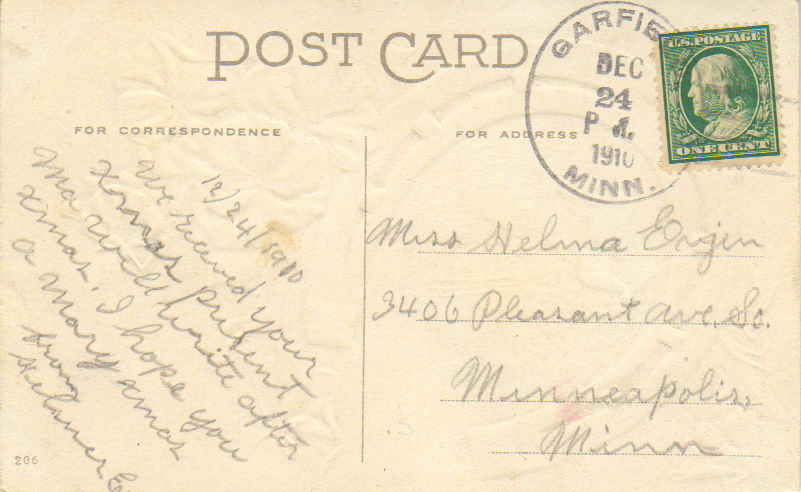 POST CARD
FOR CORRESPONDENCE
12/24/1910
We recieved your
Xmas present
Ma will write after
xmas. I hope you
a Mary xmas
from
Helmer
206
FOR ADDRESS
GARFIE
DEC
24
P
1910
MINN.
U.S. POSTAGE
ONE CENT
Miss Helma Evjen
3406 Pleasant Ave. So.
Minneapolis,
Minn